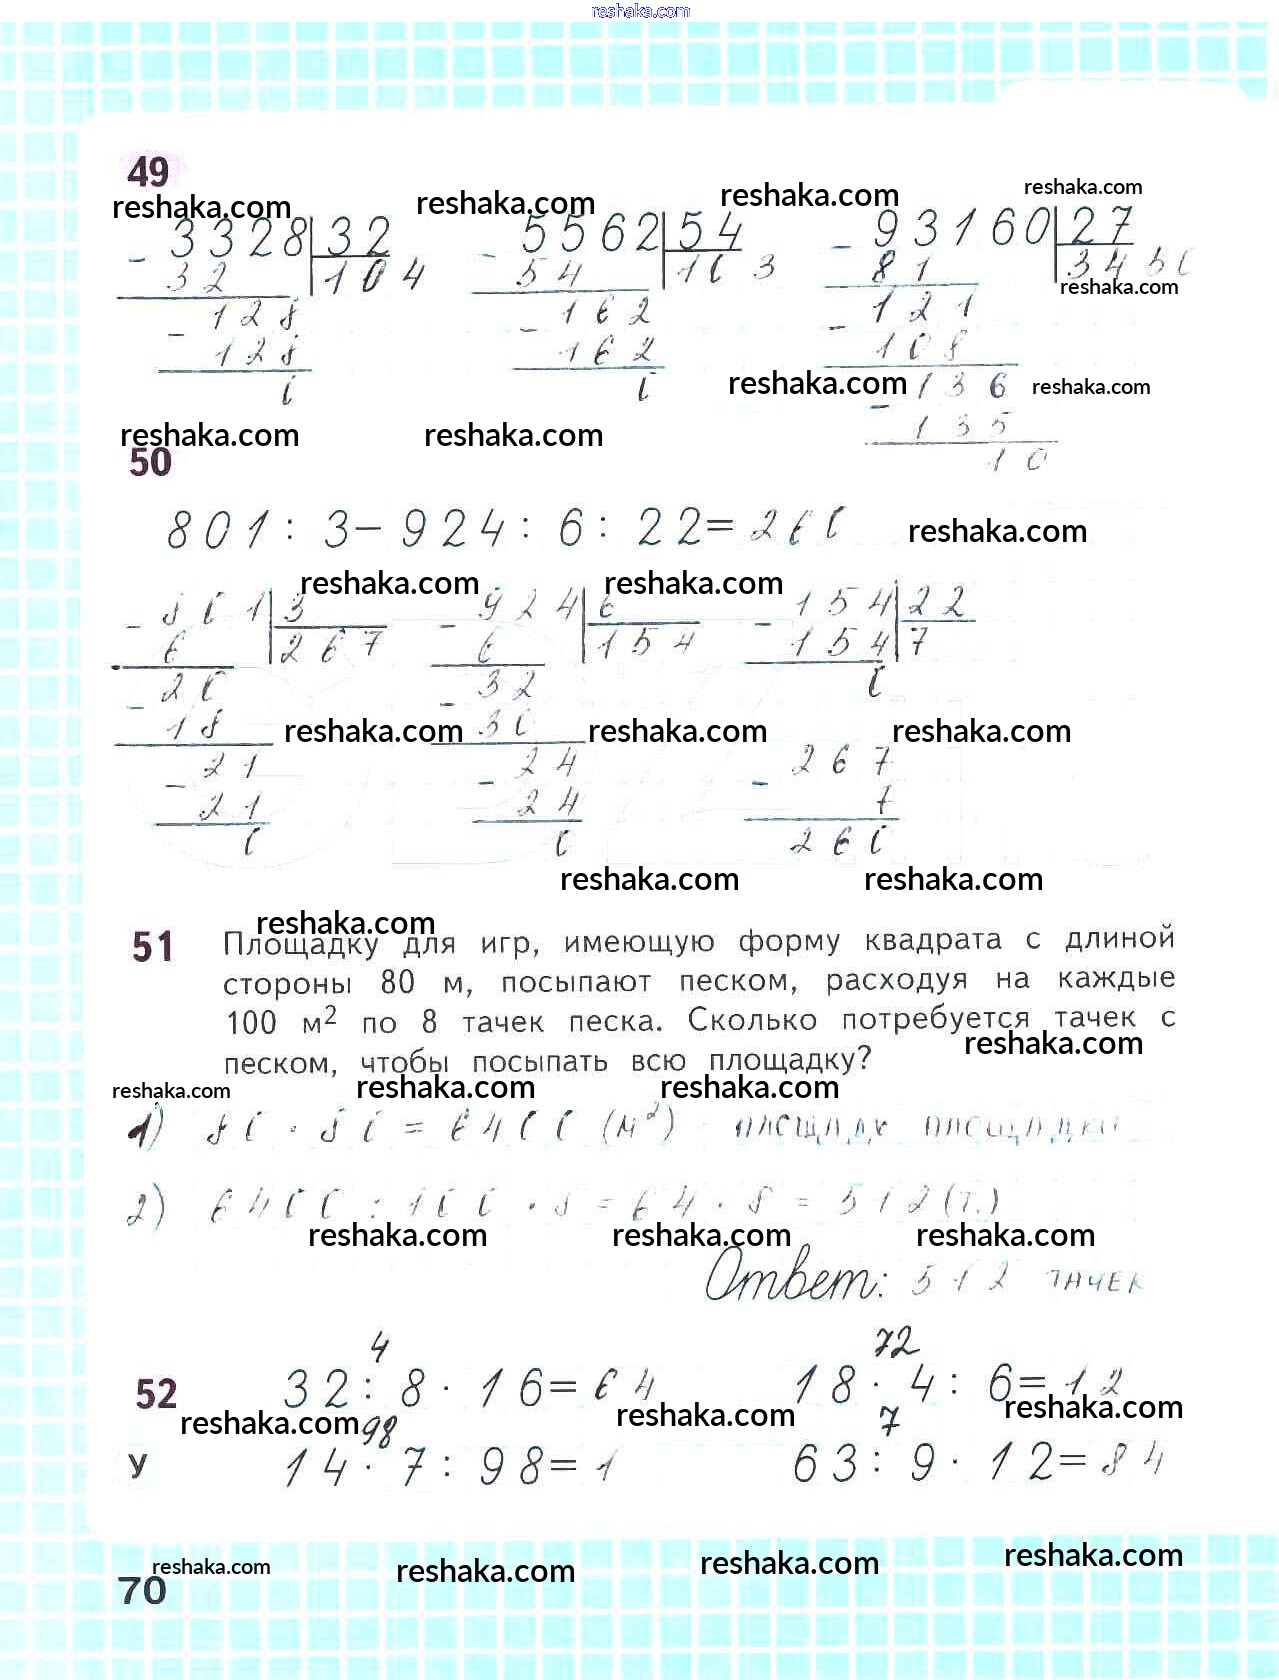 reshaka.com
49
reshaka.com reshaka.com reshaka.com reshaka.com
- 3328 | 32 - 5562 | 54 - 93160 | 27
32 104 54 103 81 3450
reshaka.com
128 162 121
- 128 - 162 - 108
0 0 136
reshaka.com reshaka.com
- 135
10
reshaka.com reshaka.com
50
801 : 3 - 924 : 6 : 22 = 260
reshaka.com
reshaka.com reshaka.com
- 801 | 3 - 924 | 6 - 154 | 22
6 267 6 154 154 7
20 32 0
- 18 - 30
reshaka.com reshaka.com reshaka.com
21 24 267
- 21 - 24 - 7
0 0 260
reshaka.com reshaka.com
reshaka.com
51 Площадку для игр, имеющую форму квадрата с длиной
стороны 80 м, посыпают песком, расходуя на каждые
100 м² по 8 тачек песка. Сколько потребуется тачек с
песком, чтобы посыпать всю площадку?
reshaka.com
reshaka.com reshaka.com reshaka.com
1) 80 · 80 = 6400 (м²) - площадь площадки
2) 6400 : 100 · 8 = 64 · 8 = 512 (т.)
reshaka.com reshaka.com reshaka.com
Ответ: 512 тачек
4 72
52 32 : 8 · 16 = 64 18 · 4 : 6 = 12
reshaka.com reshaka.com reshaka.com
98 7
У 14 · 7 : 98 = 1 63 : 9 · 12 = 84
reshaka.com reshaka.com reshaka.com reshaka.com
70